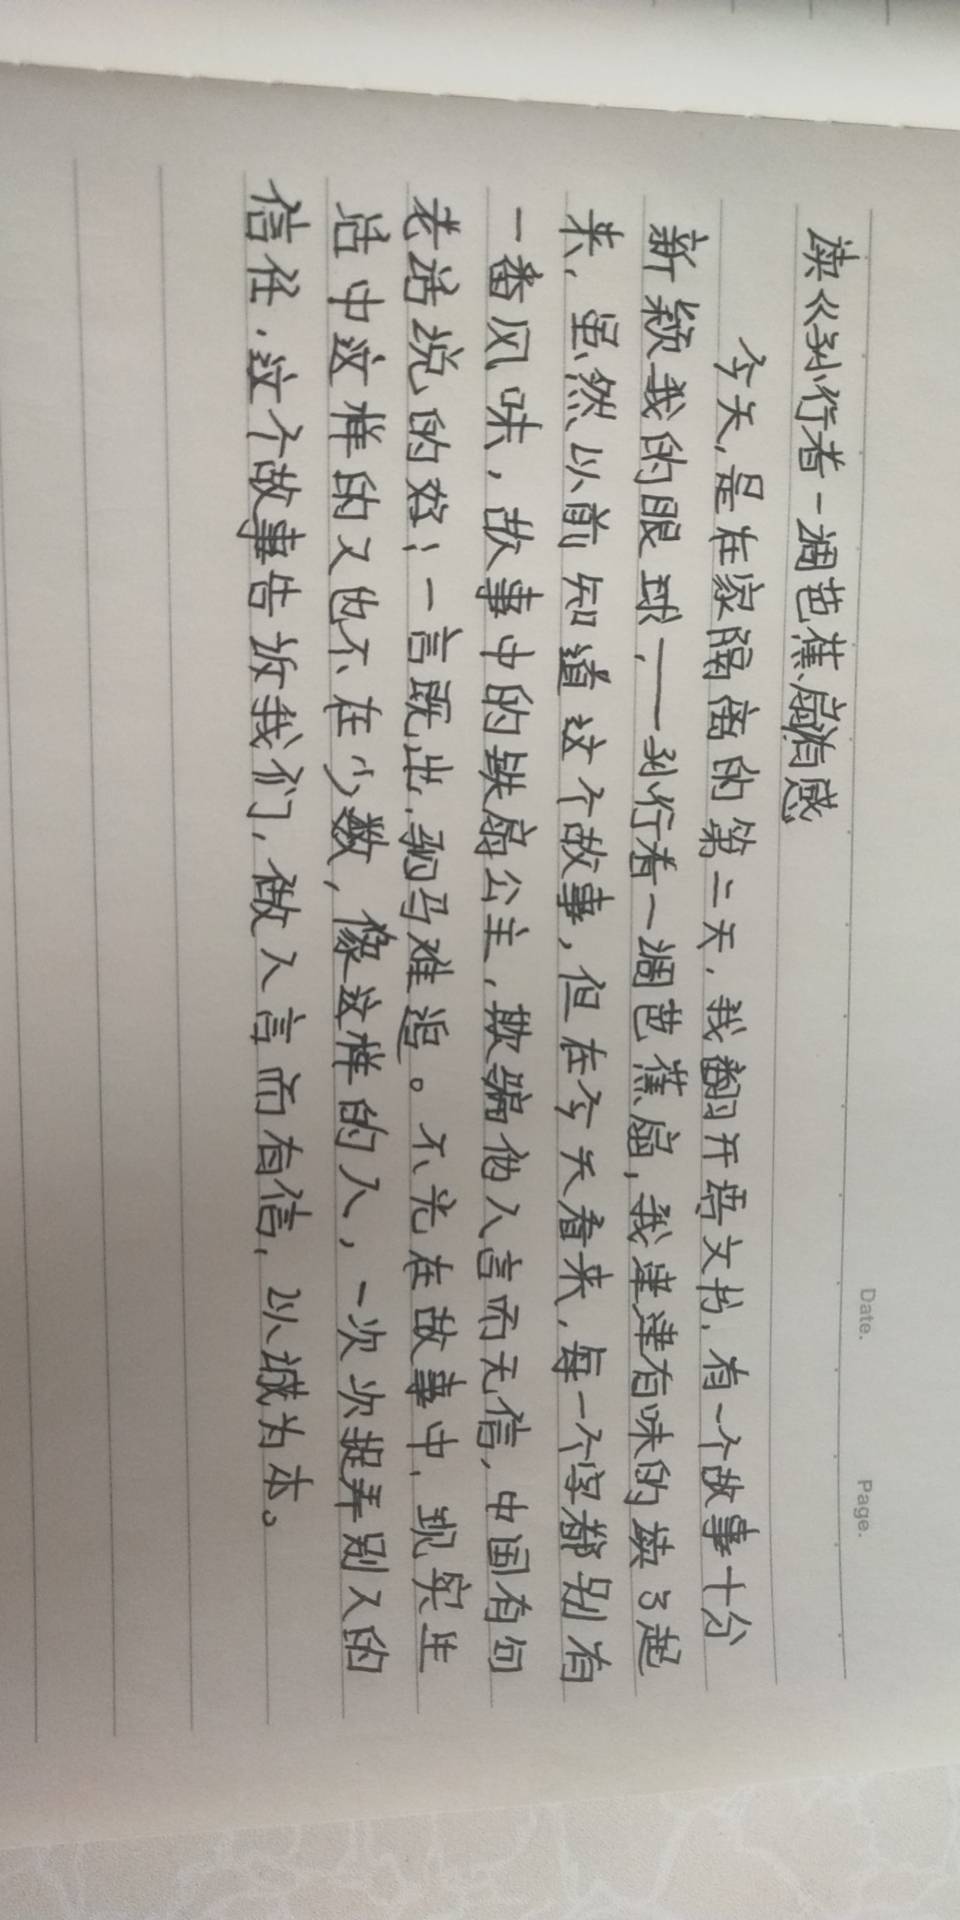 Date. Page.
读《孙行者一调芭蕉扇》有感
今天,是在家隔离的第二天,我翻开语文书,有一个故事十分
新颖我的眼球,——孙行者一调芭蕉扇,我津津有味的读了起
来,虽然以前知道这个故事,但在今天看来,每一个字都别有
一番风味,故事中的铁扇公主,欺骗他人言而无信,中国有句
老话说的好;一言既出,驷马难追。不光在故事中,现实生
活中这样的人也不在少数,像这样的人,一次次捉弄别人的
信任,这个故事告诉我们,做人言而有信,以诚为本。